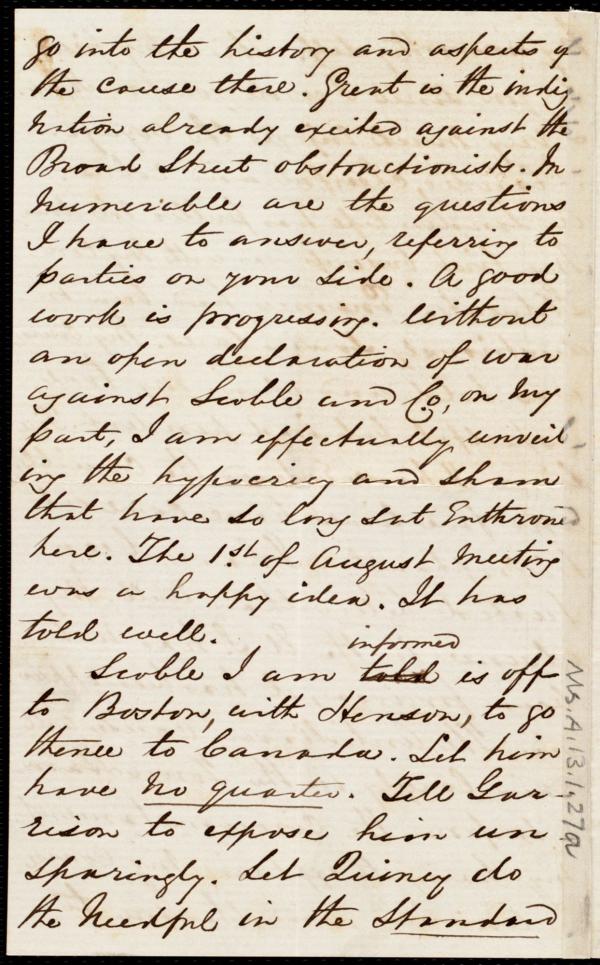 go into the history and aspects of
the cause there. Great is the indig
nation already excited against the
Broad Street obstructionists. In
numerable are the questions
I have to answer, referring to
parties on your side. A good
work is progressing. Without
an open declaration of war
against Scoble and Co, on my
part, I am effectually unveil
ing the hypocricy and sham
that have so long sat Enthrone
here. The 1st of August Meeting
was a happy idea. It has
told well.
informed
Scoble I am told is off
to Boston, with Henson, to go
thence to Canada. Let him
have no quarter. Tell Gar-
rison to expose him un
sparingly. Let Quincy do
the Needful in the Standard
Ms. A.1.3.1, 27a